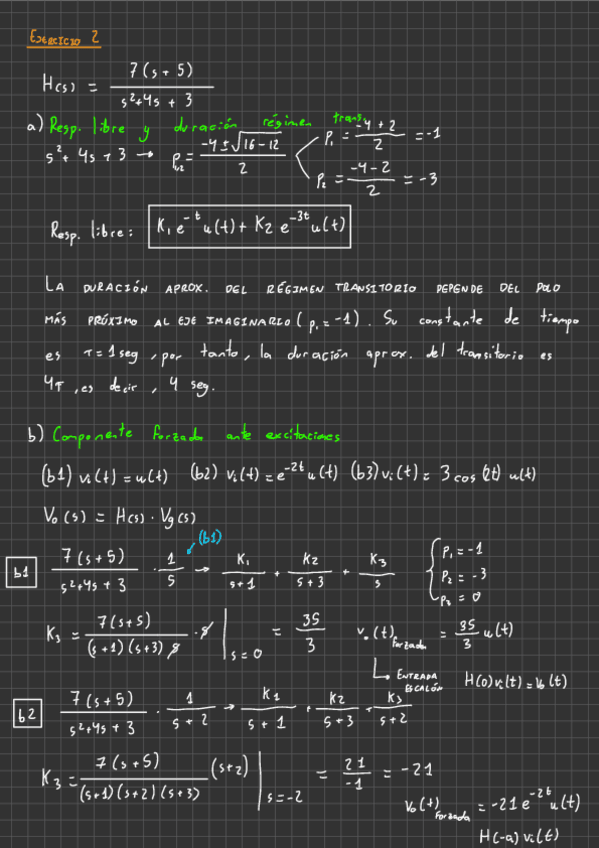 EJERCICIO 2
H(s) = 7(s+5) / s²+4s+3
a) Resp. libre y duración régimen trans.
s²+4s+3 → p₁,₂ = -4±√16-12 / 2
p₁ = -4+2 / 2 = -1
p₂ = -4-2 / 2 = -3
Resp. libre: K₁ e^-t u(t) + K₂ e^-3t u(t)
LA DURACIÓN APROX. DEL RÉGIMEN TRANSITORIO DEPENDE DEL POLO
MÁS PRÓXIMO AL EJE IMAGINARIO (p₁ = -1). Su constante de tiempo
es τ = 1 seg, por tanto, la duración aprox. del transitorio es
4τ, es decir, 4 seg.
b) Componente forzada ante excitaciones
(b1) vi(t) = u(t) (b2) vi(t) = e^-2t u(t) (b3) vi(t) = 3 cos(2t) u(t)
Vo(s) = H(s) · Vg(s)
(b1)
b1 7(s+5) / s²+4s+3 · 1/s → K₁/s+1 + K₂/s+3 + K₃/s
p₁ = -1
p₂ = -3
p₃ = 0
K₃ = 7(s+5) / (s+1)(s+3)s · s | s=0 = 35/3 vo(t) forzada = 35/3 u(t)
ENTRADA ESCALÓN H(0) vi(t) = vo(t)
b2 7(s+5) / s²+4s+3 · 1/s+2 → K₁/s+1 + K₂/s+3 + K₃/s+2
K₃ = 7(s+5) / (s+1)(s+2)(s+3) (s+2) | s=-2 = 21/-1 = -21
vo(t) forzada = -21 e^-2t u(t)
H(-a) vi(t)